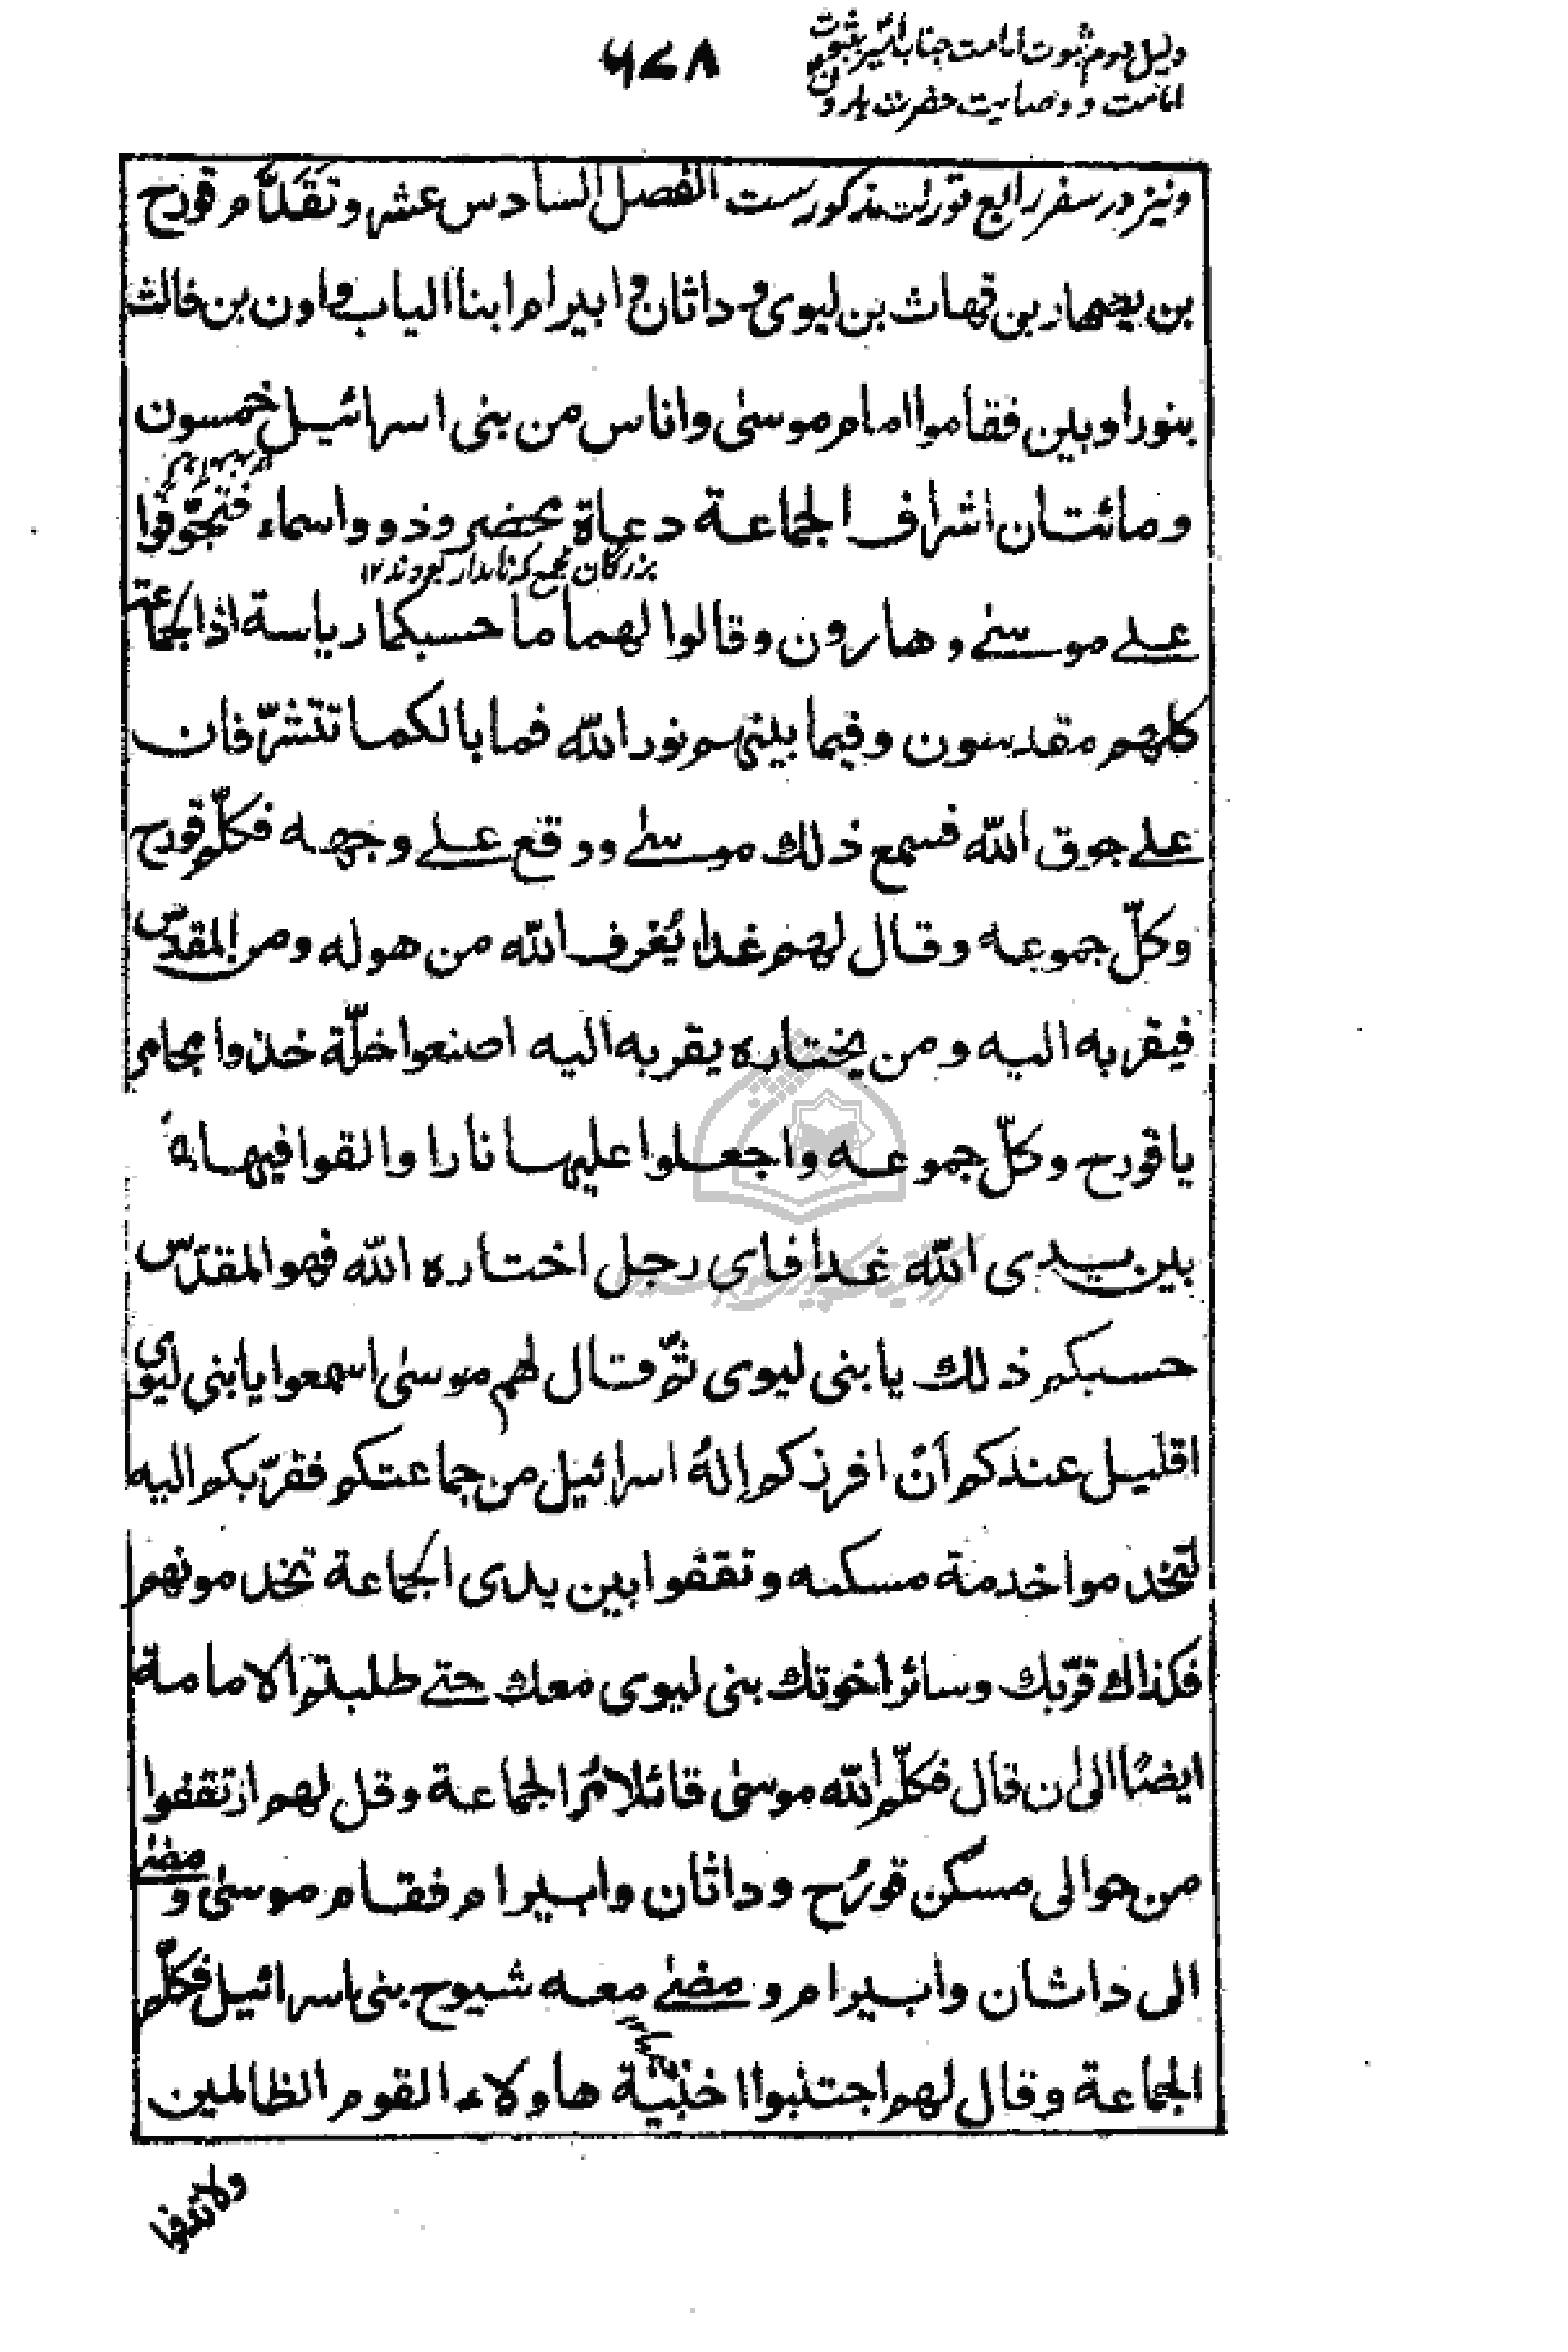 ۶۷۸
دلیل دوم ثبوت امامت جناب امیر بثبوت
امامت و وصایت حضرت هارون
ونیز در سفر رابع توراة مذکورست الفصل السادس عشر وتقدّم قورح
بن یصهار بن قهاث بن لیوی و داثان و ابیرام ابنا الیاب واون بن فالث
بنو راوبین فقاموا امام موسی واناس من بنی اسرائیل خمسون
ومائتان اشراف الجماعة دعاة محضر وذوو اسماء فتجوّقوا
بزرگان مجمع که نامدار بودند ۱۲
علی موسی وهارون وقالوا لهما ما حسبکما ریاسة اذ الجماعة
کلهم مقدسون وفیما بینهم نور الله فما بالکما تتشرّفان
علی جوق الله فسمع ذلك موسی ووقع علی وجهه فکلّم قورح
وکلّ جموعه وقال لهم غدا یُعرف الله من هو له ومن المقدّس
فیقربه الیه ومن یختاره یقربه الیه اصنعوا خلّة خذوا مجامر
یا قورح وکلّ جموعه واجعلوا علیها نارا والقوا فیها
بین یدی الله غدا فای رجل اختاره الله فهو المقدّس
حسبکم ذلك یا بنی لیوی ثمّ قال لهم موسی اسمعوا یا بنی لیوی
اقلیل عندکم أن افرزکم إله اسرائیل من جماعتکم فقرّبکم الیه
لتخدموا خدمة مسکنه وتقفوا بین یدی الجماعة تخدمونهم
فکذلك قرّبك وسائر اخوتك بنی لیوی معك حتی طلبتم الامامة
ایضًا الی ان قال فکلّم الله موسی قائلا مُر الجماعة وقل لهم ارتقفوا
من حوالی مسکن قورح وداثان وابیرام فقام موسی ومضی
الی داثان وابیرام ومضی معه شیوح بنی اسرائیل فکلّم
الجماعة وقال لهم اجتنبوا اخبیة هاولاء القوم الظالمین
ولا تدنوا